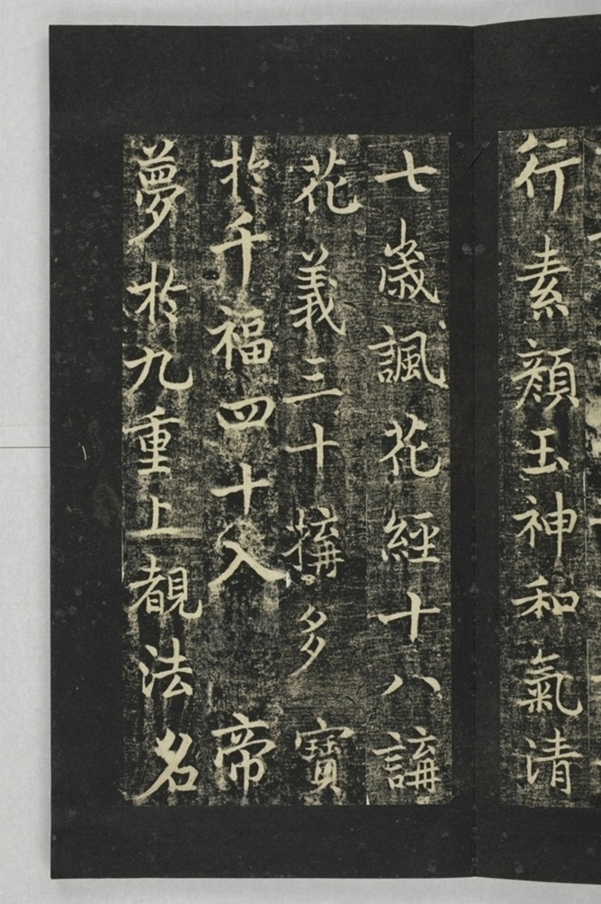 行素顏玉神和氣清
七歲諷花經十八講
花義三十搆多寶
於千福四十入帝
夢於九重上覩法名